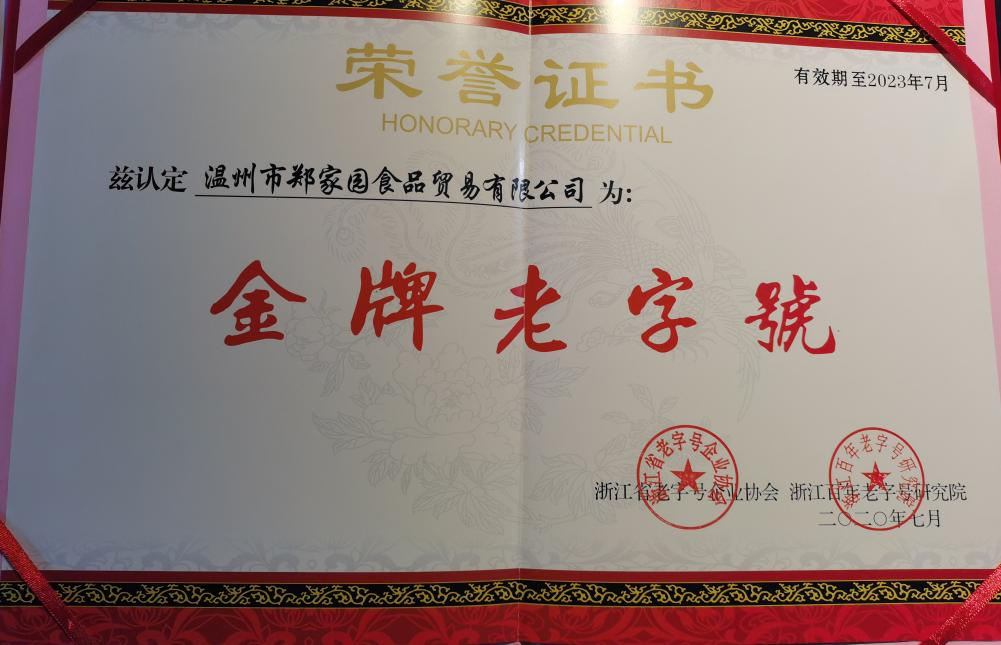 荣誉证书
有效期至2023年7月
HONORARY CREDENTIAL
兹认定 温州市郑家园食品贸易有限公司 为:
金牌老字號
浙江省老字号企业协会
浙江百年老字号研究院
浙江省老字号企业协会 浙江百年老字号研究院
二〇二〇年七月